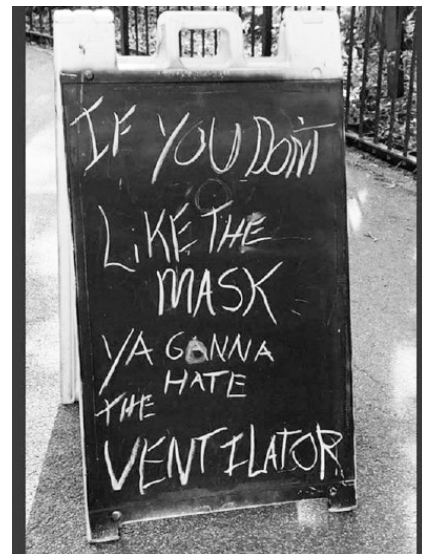 IF YOU DON'T
LIKE THE
MASK
YA GANNA
HATE
THE
VENTILATOR